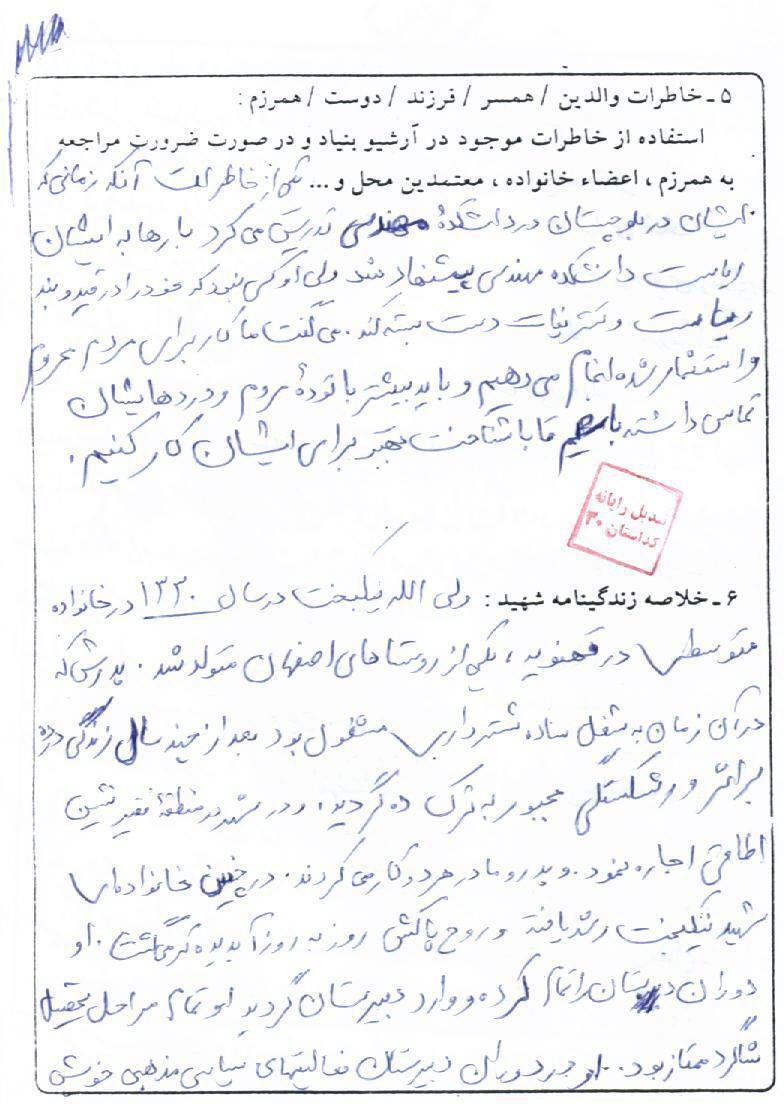 ۵ ـ خاطرات والدین / همسر / فرزند / دوست / همرزم :
استفاده از خاطرات موجود در آرشیو بنیاد و در صورت ضرورت مراجعه
به همرزم ، اعضاء خانواده ، معتمدین محل و ... یکی از خاطرات آنکه زمانی که
ایشان در بلوچستان در دانشکدهٔ مهندسی تدریس می کرد بارها به ایشان
ریاست دانشکده مهندسی پیشنهاد شد ولی او کسی نبود که خود را در قید و بند
ریاست و تشریفات دست بسته کند . می گفت ما کار برای مردم محروم
و استثمار شده انجام می دهیم و باید بیشتر با تودهٔ مردم و دردهایشان
تماس داشته باشیم تا با شناخت بهتر برای ایشان کار کنیم .
تبدیل رایانه
کداستان ۳۰
۶ ـ خلاصه زندگینامه شهید : ولی الله نیکبخت در سال ۱۳۳۰ در خانواده
متوسطی در قهنویه ، یکی از روستاهای اصفهان متولد شد . پدرش که
در آن زمان به شغل ساده شترداری مشغول بود بعد از چند سال زندگی در ده
بر اثر ورشکستگی مجبور به ترک ده گردید ، و در شهر در منطقهٔ فقیر نشین
اطاقی اجاره نمود . و پدر و مادر هر دو کار می کردند . در چنین خانواده ای
شهید نیکبخت رشد یافته و روح پاکش روز به روز آبدیده تر می گشت . او
دوران دبستان را تمام کرده و وارد دبیرستان گردید او تمام مراحل تحصیل
شاگرد ممتاز بود . او در دوران دبیرستان فعالیتهای سیاسی مذهبی خویش